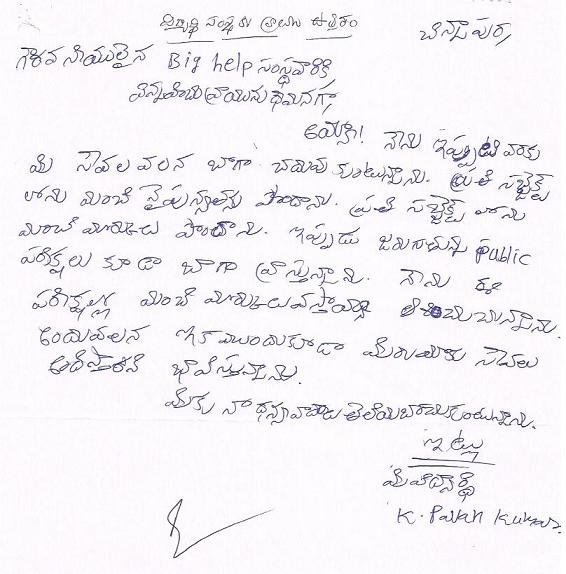 విద్యార్థి సంస్థకు వ్రాయు ఉత్తరం
చినాపుర,
గౌరవనీయులైన Big help సంస్థవారికి
విన్నవించు వ్రాయునది ఏమనగా,
అయ్యా! నేను ఇప్పటి వరకు
మీ సేవల వలన బాగా చదువుకుంటున్నాను. ప్రతి సబ్జెక్ట్
లోను మంచి నైపుణ్యాలను పొందాను. ప్రతి సబ్జెక్ట్ లోను
మంచి మార్కులు పొందాను. ఇప్పుడు జరుగుతున్న public
పరీక్షలు కూడా బాగా వ్రాస్తున్నాను. నేను ఈ
పరీక్షల్లో మంచి మార్కులు వస్తాయని
అందువలన ఇక ముందు కూడా మీరు మాకు సేవలు
అందిస్తారని భావిస్తున్నాను.
మీకు నా ధన్యవాదాలు తెలియజేసుకుంటున్నాను.
ఇట్లు
మీ విద్యార్థి
K. Pavan Kumar.